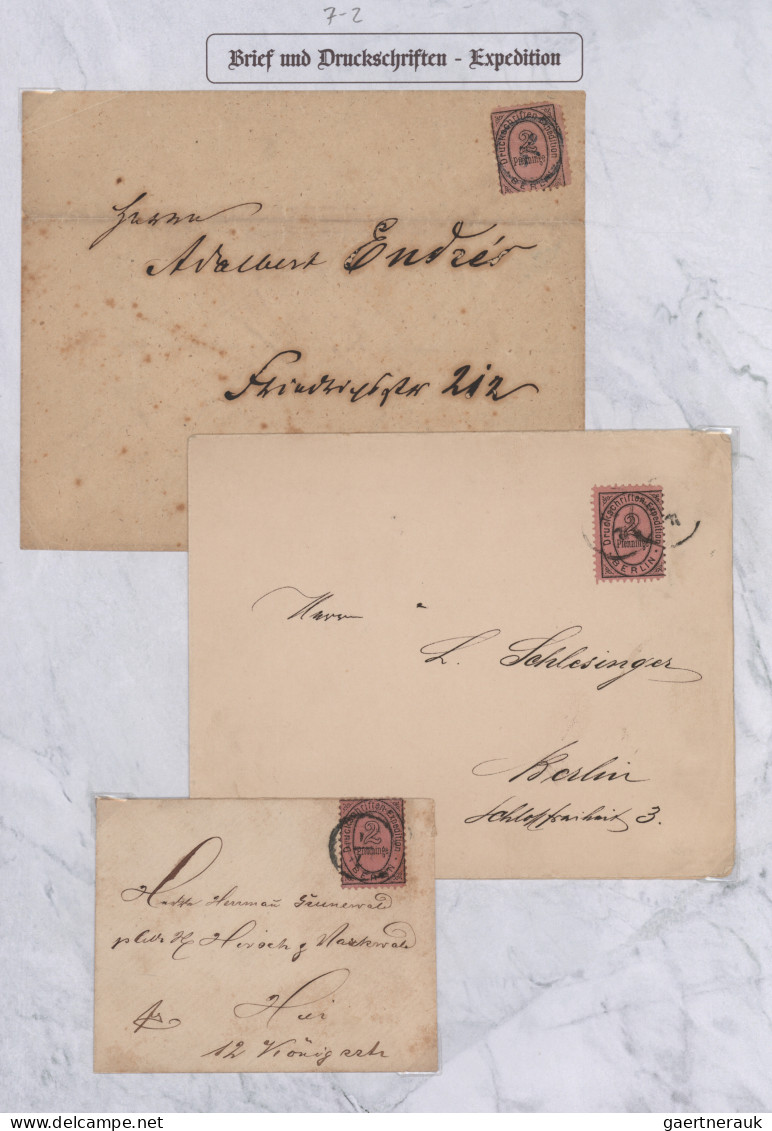 7-2
Brief und Druckschriften - Expedition
Druckschriften-Expedition
2
Pfennige
BERLIN
Herrn
Adalbert Endrés
Friedrichsstr 212
Druckschriften-Expedition
2
Pfennige
BERLIN
Herrn
L. Schlesinger
Berlin
Schloßfreiheit 3.
Druckschriften-Expedition
2
Pfennige
BERLIN
Herrmañ Grunewald
Hirsch & Markwald
Hier
12 Königsstr
gaertnerauk